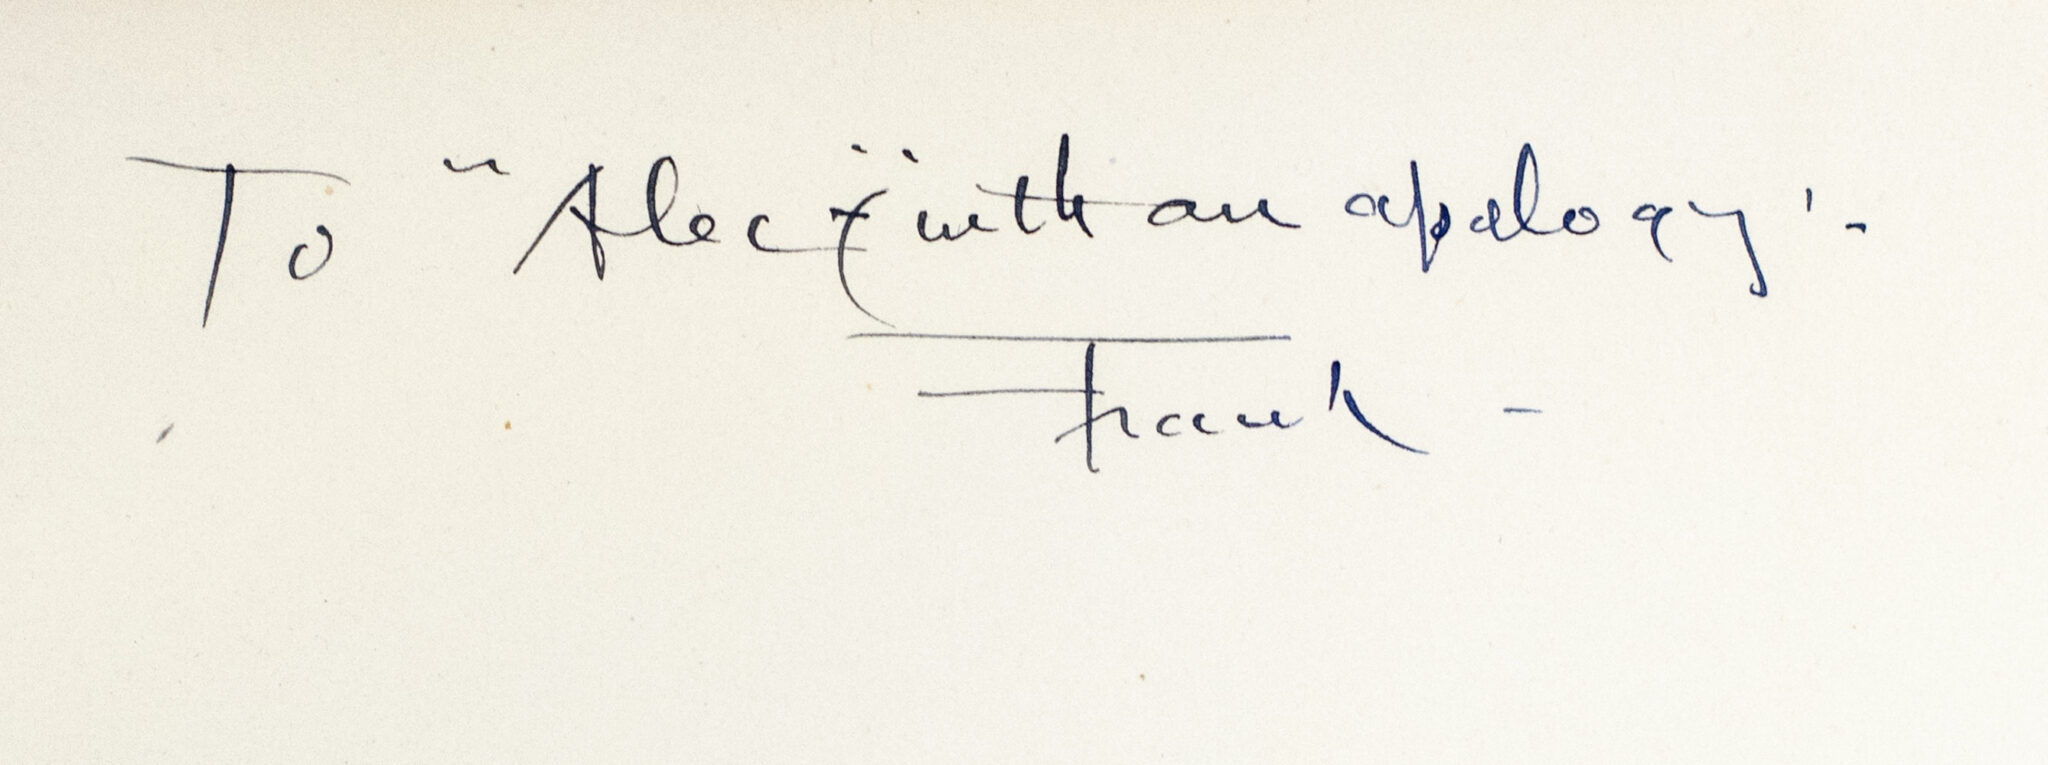 To "Alec" with an apology! -
Frank -